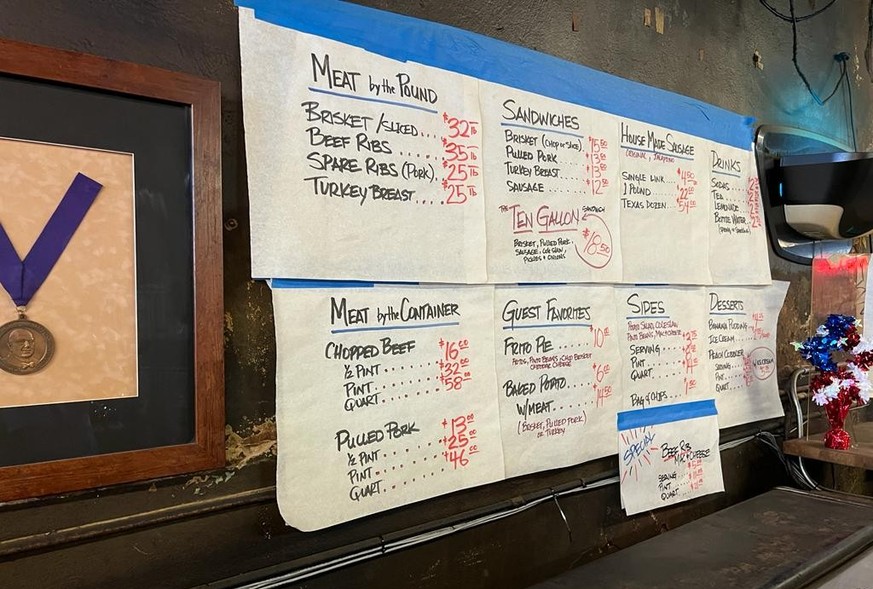 MEAT by the POUND
BRISKET/SLICED.... $32 lb
BEEF RIBS ..... $35 lb
SPARE RIBS (PORK).. $25 lb
TURKEY BREAST..... $25 lb
SANDWICHES
BRISKET (CHOP or SLICE)
PULLED PORK
TURKEY BREAST
SAUSAGE $12
THE TEN GALLON SANDWICH
BRISKET, PULLED PORK,
SAUSAGE, COLESLAW,
PICKLES & ONIONS
$18.50
HOUSE MADE SAUSAGE
ORIGINAL, JALAPEÑO
SINGLE LINK $4.50
1 POUND $22
TEXAS DOZEN $54
DRINKS
SODAS
TEA
LEMONADE
BOTTLE WATER
MEAT by the CONTAINER
CHOPPED BEEF
1/2 PINT $16.00
PINT $32.00
QUART $58.00
PULLED PORK
1/2 PINT $13.00
PINT $25.00
QUART $46.00
GUEST FAVORITES
FRITO PIE $10
FRITOS, PINTO BEANS, CHOP BRISKET
CHEDDAR CHEESE
BAKED POTATO $6
W/MEAT $14.50
(BRISKET, PULLED PORK)
or TURKEY
SIDES
POTATO SALAD, COLESLAW
PINTO BEANS, MAC & CHEESE
SERVING
PINT
QUART
BAG of CHIPS
DESSERTS
BANANA PUDDING
ICE CREAM
PEACH COBBLER
SERVING
PINT
QUART
W/ICE CREAM
SPECIAL
BEEF RIB
MAC & CHEESE
SERVING
PINT
QUART